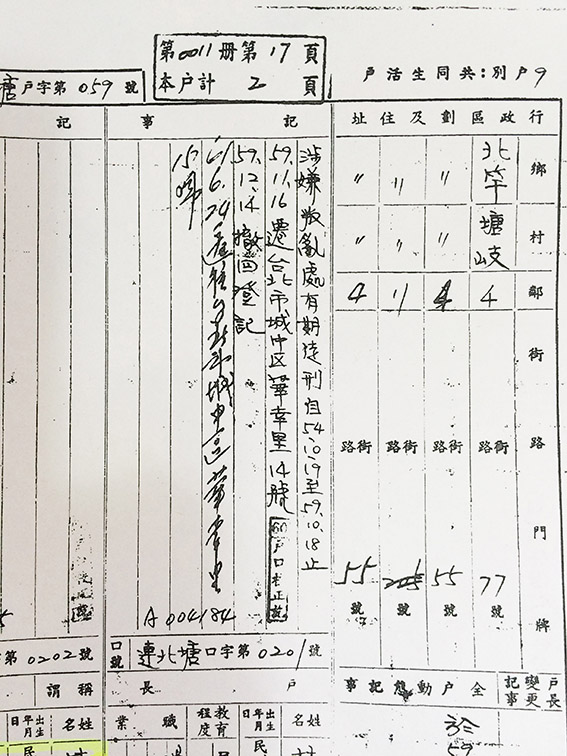 戶別:共同生活戶
第0011冊第17頁
本戶計 2 頁
塘戶字第059號
行政區劃及住址
鄉
北竿
〃
〃
〃
村
塘岐
〃
〃
〃
鄰
4
4
11
4
街
路
街路
街路
街路
門
牌
77
55
55
號
號
號
號
記事
涉嫌叛亂處有期徒刑自54.10.19至59.10.18止
59.11.16遷台北市城中区華幸里14號
60戶口校正
59.12.14撤回登記
61.6.24遷往台北市城中區華幸里
15鄰
A004184
記
口號
連北塘口字第0201號
字第0202號
戶長
變更
記事
全戶動態記事
戶長
稱謂
姓名
出生年月日
教育程度
職業
姓名
出生年月日
民
民
59